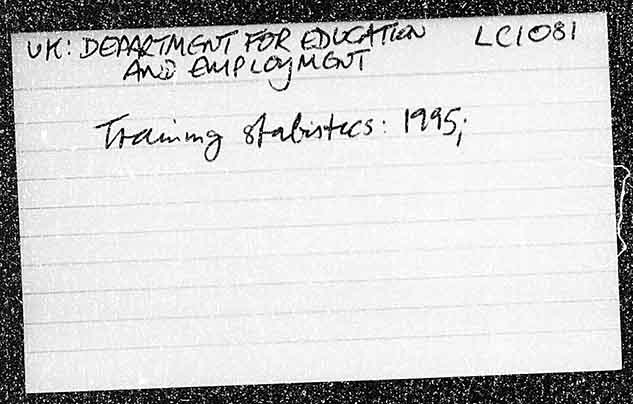 UK: DEPARTMENT FOR EDUCATION LC1081
AND EMPLOYMENT
Training statistics: 1995;